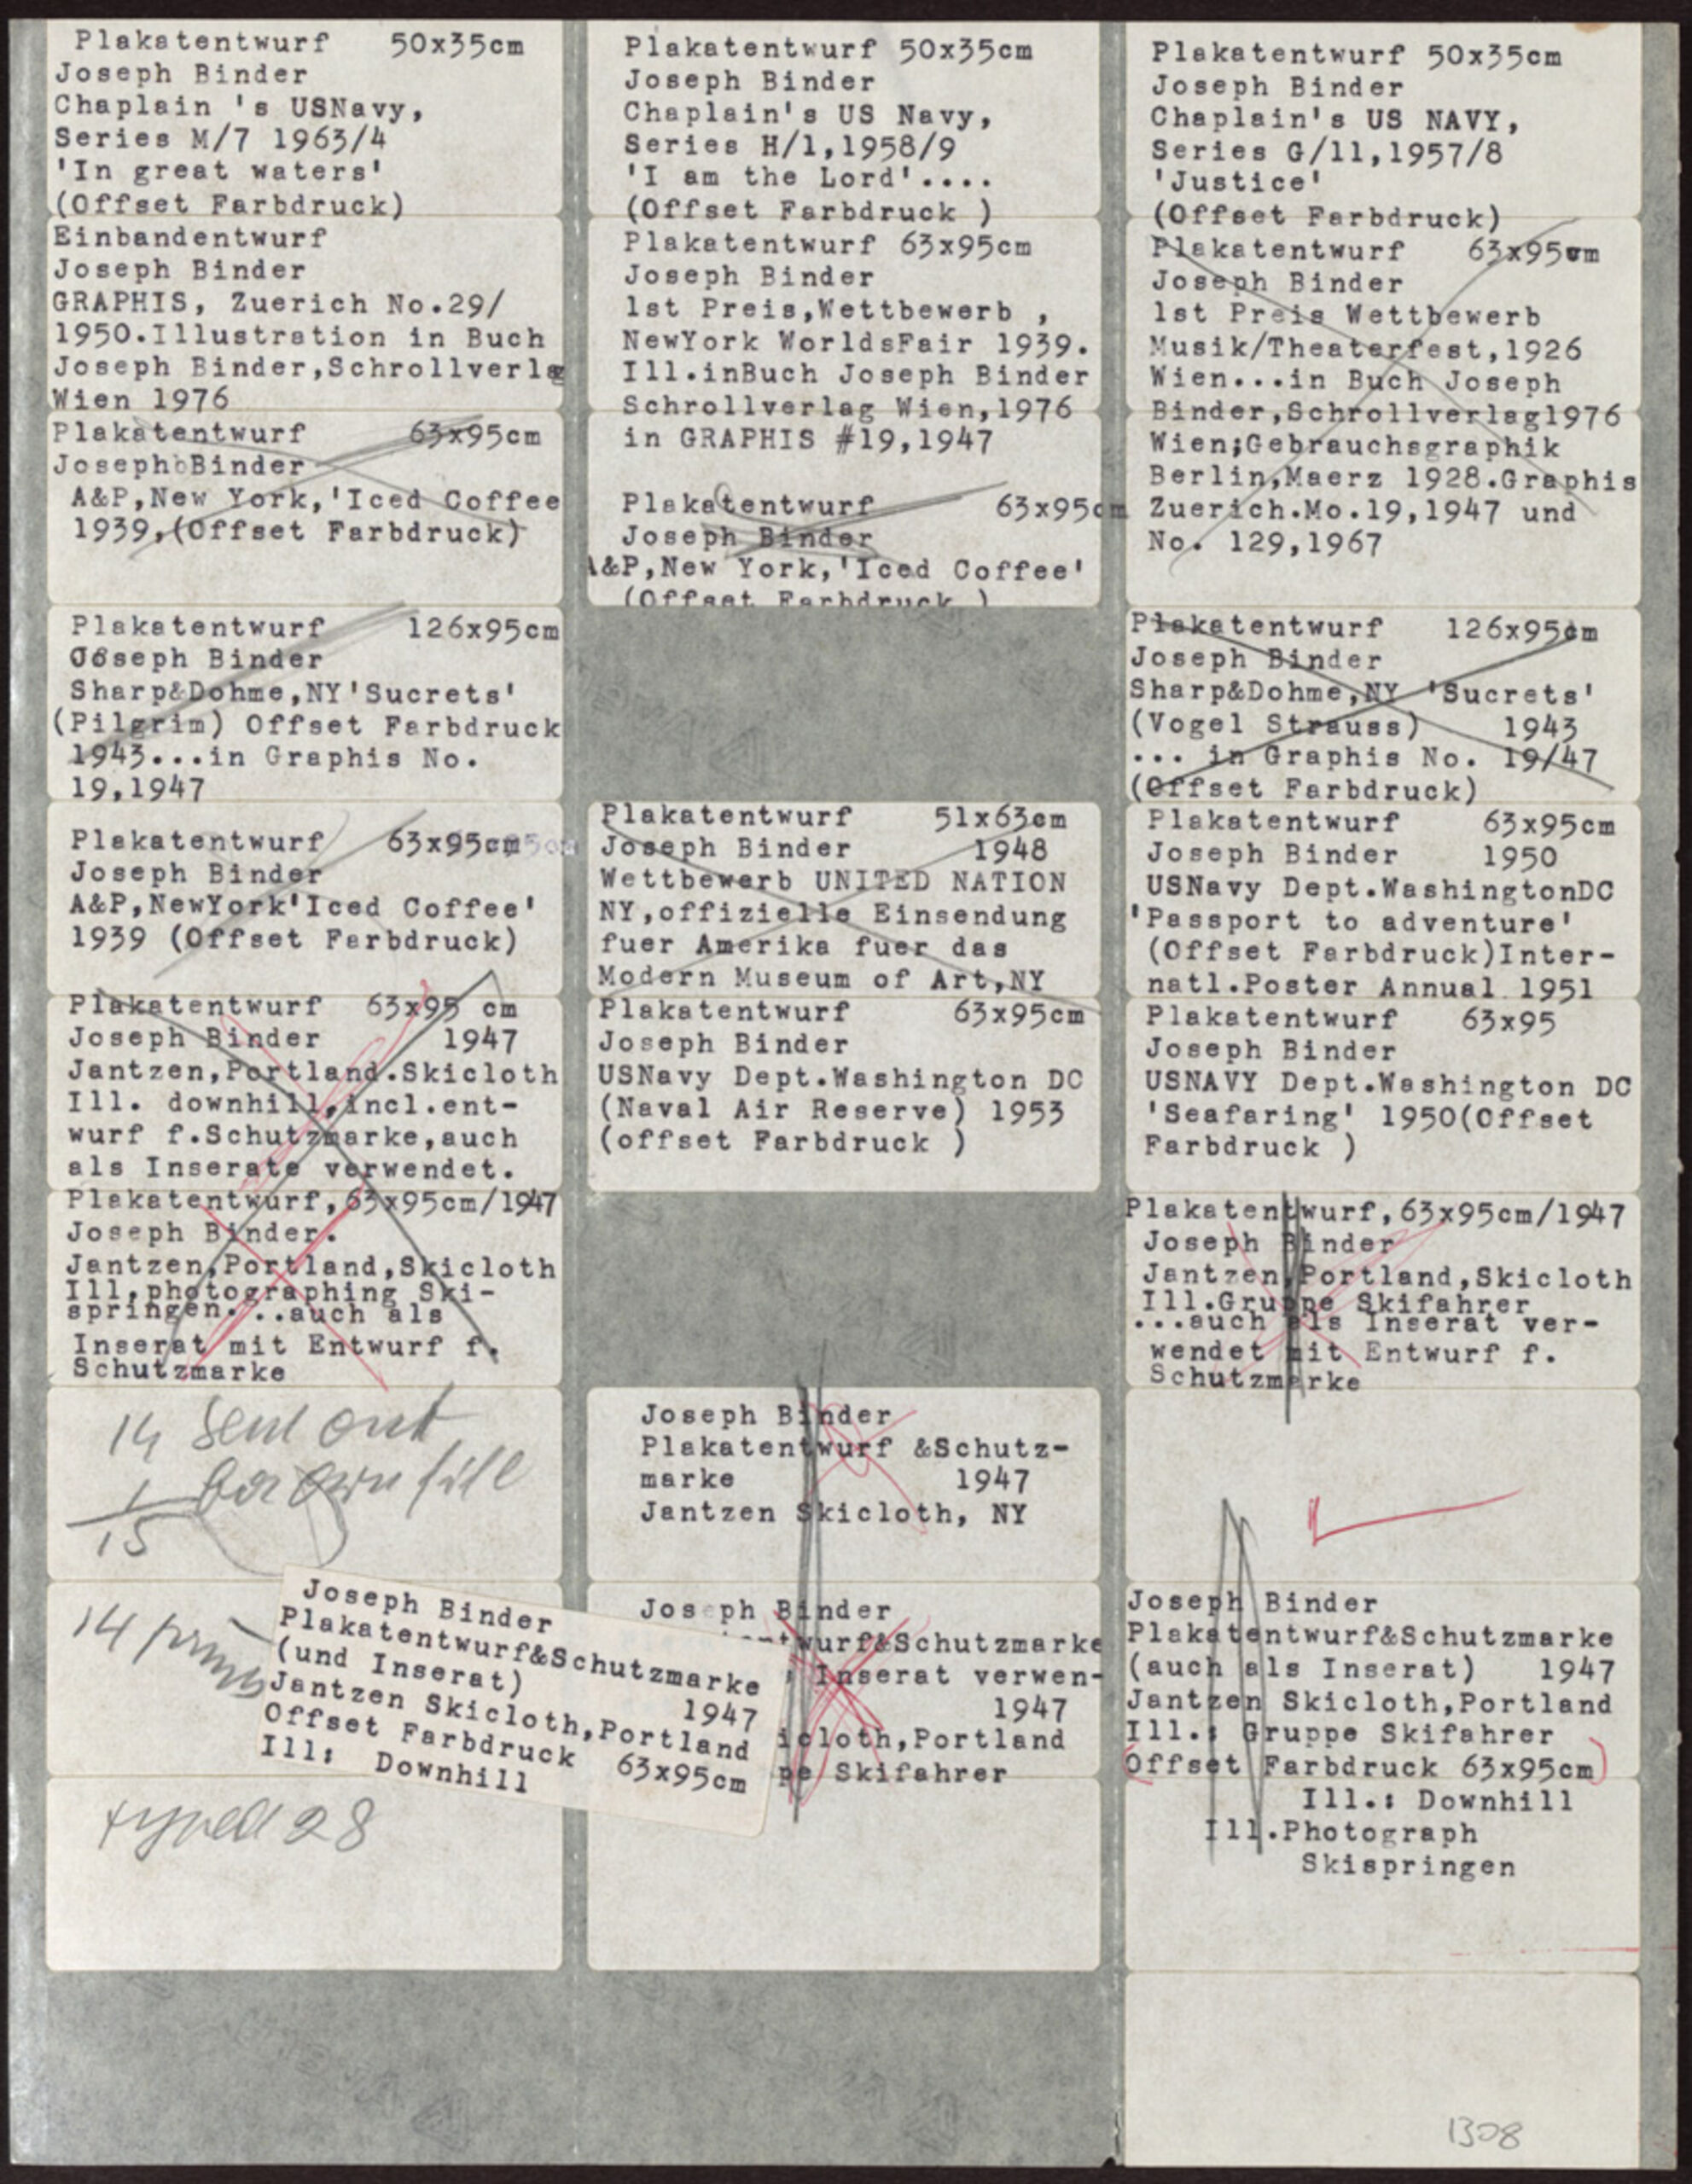 Plakatentwurf 50x35cm
Joseph Binder
Chaplain 's USNavy,
Series M/7 1963/4
'In great waters'
(Offset Farbdruck)
Einbandentwurf
Joseph Binder
GRAPHIS, Zuerich No.29/
1950.Illustration in Buch
Joseph Binder,Schrollverlag
Wien 1976
Plakatentwurf 63x95cm
Joseph Binder
A&P,New York,'Iced Coffee
1939,(Offset Farbdruck)
Plakatentwurf 126x95cm
Joseph Binder
Sharp&Dohme,NY'Sucrets'
(Pilgrim) Offset Farbdruck
1943...in Graphis No.
19,1947
Plakatentwurf 63x95cm
Joseph Binder
A&P,NewYork'Iced Coffee'
1939 (Offset Farbdruck)
Plakatentwurf 63x95 cm
Joseph Binder 1947
Jantzen,Portland.Skicloth
Ill. downhill,incl.ent-
wurf f.Schutzmarke,auch
als Inserate verwendet.
Plakatentwurf,63x95cm/1947
Joseph Binder.
Jantzen,Portland,Skicloth
Ill.photographing Ski-
springen...auch als
Inserat mit Entwurf f.
Schutzmarke
14 sent out
1 for own file
15
14
28
Plakatentwurf 50x35cm
Joseph Binder
Chaplain's US Navy,
Series H/1,1958/9
'I am the Lord'....
(Offset Farbdruck )
Plakatentwurf 63x95cm
Joseph Binder
1st Preis,Wettbewerb ,
NewYork WorldsFair 1939.
Ill.inBuch Joseph Binder
Schrollverlag Wien,1976
in GRAPHIS #19,1947
Plakatentwurf 63x95cm
Joseph Binder
A&P,New York,'Iced Coffee'
(Offset Farbdruck )
Plakatentwurf 51x63cm
Joseph Binder 1948
Wettbewerb UNITED NATION
NY,offizielle Einsendung
fuer Amerika fuer das
Modern Museum of Art,NY
Plakatentwurf 63x95cm
Joseph Binder
USNavy Dept.Washington DC
(Naval Air Reserve) 1953
(offset Farbdruck )
Joseph Binder
Plakatentwurf &Schutz-
marke 1947
Jantzen Skicloth, NY
Joseph Binder
Plakatentwurf&Schutzmarke
(und Inserat)
1947
Jantzen Skicloth,Portland
Offset Farbdruck 63x95cm
Ill: Downhill
Joseph Binder
wurf&Schutzmarke
Inserat verwen-
1947
icloth,Portland
pe Skifahrer
Plakatentwurf 50x35cm
Joseph Binder
Chaplain's US NAVY,
Series G/11,1957/8
'Justice'
(Offset Farbdruck)
Plakatentwurf 63x95cm
Joseph Binder
1st Preis Wettbewerb
Musik/Theaterfest,1926
Wien...in Buch Joseph
Binder,Schrollverlag1976
Wien;Gebrauchsgraphik
Berlin,Maerz 1928.Graphis
Zuerich.Mo.19,1947 und
No. 129,1967
Plakatentwurf 126x95cm
Joseph Binder
Sharp&Dohme,NY 'Sucrets'
(Vogel Strauss) 1943
... in Graphis No. 19/47
(Offset Farbdruck)
Plakatentwurf 63x95cm
Joseph Binder 1950
USNavy Dept.WashingtonDC
'Passport to adventure'
(Offset Farbdruck)Inter-
natl.Poster Annual 1951
Plakatentwurf 63x95
Joseph Binder
USNAVY Dept.Washington DC
'Seafaring' 1950(Offset
Farbdruck )
Plakatentwurf,63x95cm/1947
Joseph Binder
Jantzen,Portland,Skicloth
Ill.Gruppe Skifahrer
...auch als Inserat ver-
wendet mit Entwurf f.
Schutzmarke
Joseph Binder
Plakatentwurf&Schutzmarke
(auch als Inserat) 1947
Jantzen Skicloth,Portland
Ill.: Gruppe Skifahrer
(Offset Farbdruck 63x95cm)
Ill.: Downhill
Ill.Photograph
Skispringen
1308